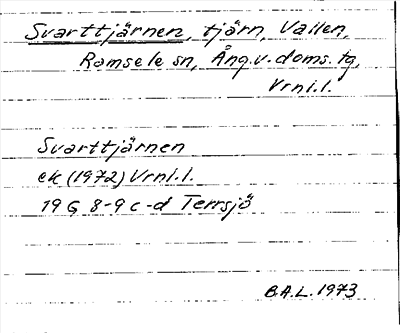 Svarttjärnen, tjärn, Vallen,
Ramsele sn, Ång.v.doms.tg,
Vrnl.l.
Svarttjärnen
ek (1972) Vrnl.l.
19 G 8-9 c-d Terrsjö
B.A.L. 1973